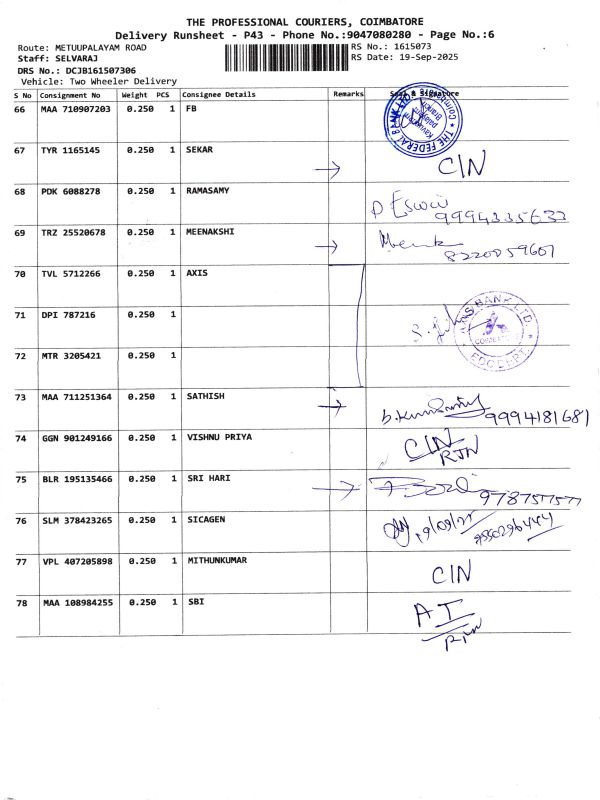 THE PROFESSIONAL COURIERS, COIMBATORE
Delivery Runsheet - P43 - Phone No.:9047080280 - Page No.:6
Route: METUUPALAYAM ROAD RS No.: 1615073
Staff: SELVARAJ RS Date: 19-Sep-2025
DRS No.: DCJB161507306
Vehicle: Two Wheeler Delivery
S No Consignment No Weight PCS Consignee Details Remarks Seal & Signature
66 MAA 710907203 0.250 1 FB
THE FEDERAL BANK LTD. Coimbatore
Branch
67 TYR 1165145 0.250 1 SEKAR
CIN
68 PDK 6088278 0.250 1 RAMASAMY
69 TRZ 25520678 0.250 1 MEENAKSHI
8220059601
70 TVL 5712266 0.250 1 AXIS
71 DPI 787216 0.250 1
BANK LTD.
72 MTR 3205421 0.250 1
73 MAA 711251364 0.250 1 SATHISH
9994181681
74 GGN 901249166 0.250 1 VISHNU PRIYA
CIN
RTN
75 BLR 195135466 0.250 1 SRI HARI
76 SLM 378423265 0.250 1 SICAGEN
77 VPL 407205898 0.250 1 MITHUNKUMAR
CIN
78 MAA 108984255 0.250 1 SBI
AT
RTN